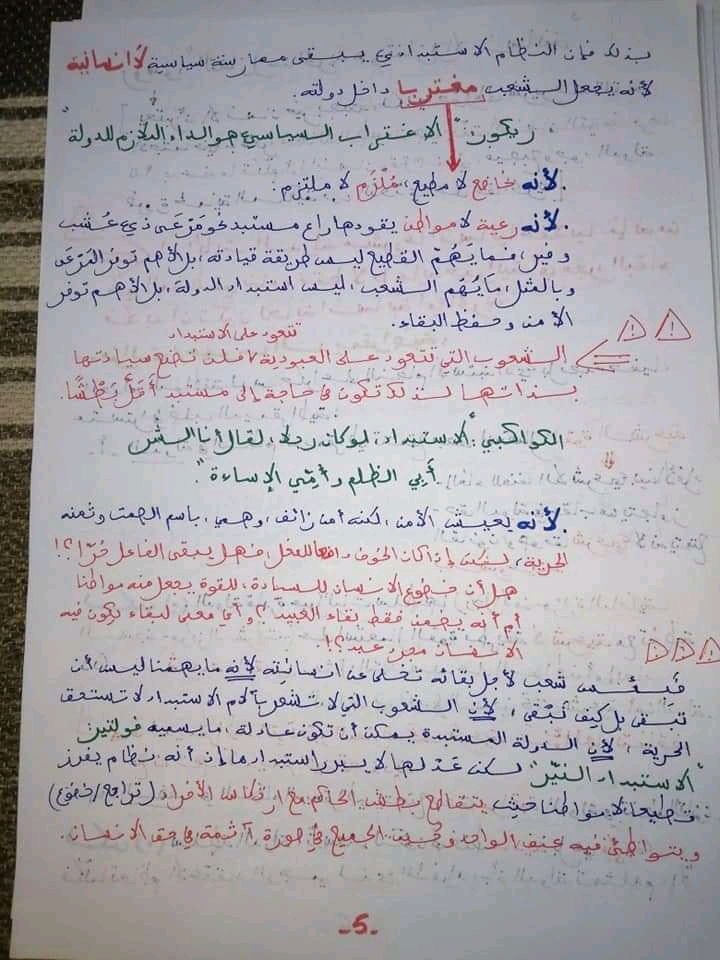 بذلك فإن النظام الاستبدادي يبقى ممارسة سياسية لا إنسانية
لأنه يجعل الشعب مغتربا داخل دولته.
ريكور: "الاغتراب السياسي هو الداء الملازم للدولة"
. لأنه خاضع لا مطيع، مُلْزَم لا ملتزم.
. لأنه رعية لا مواطن يقودها راع مستبد نحو مَرْعَى ذي عُشب
وفير، فما يَهُمّ القطيع ليس طريقة قيادته، بل الأهم توفر المَرْعَى
وبالمثل، ما يَهُم الشعب، ليس استبداد الدولة، بل الأهم توفر
الأمن وحفظ البقاء.
تتعود على الاستبداد
الشعوب التي تتعود على العبودية / فلن تصنع سيادتها
بذاتها لذلك تكون في حاجة إلى مستبد أقلّ بَطْشًا.
الكواكبي: "الاستبداد، لو كان رجلا، لقال أنا الشر
أبي الظلم وأمّي الإساءة".
. لأنه يعيش الأمن، لكنه أمن زائف، وهمي، باسم الصمت وثمنه
الحرية، لكن إذا كان الخوف دافعا للعمل فهل يبقى الفاعل حُرّا؟!
هل أن خضوع الإنسان للسيادة، للقوة يجعل منه مواطنا
أم أنه يضمن فقط بقاء العبيد؟ وأي معنى لبقاء يكون فيه
الإنسان مجرد عبد؟!
فَبِئْسَ شعب لأجل بقائه تخلى عن إنسانيته لأنه ما يهمنا ليس أن
نبقى بل كيف نَبْقَى، لأن الشعوب التي لا تشعر بآلام الاستبداد لا تستحق
الحرية، لأن الدولة المستبدة يمكن أن تكون عادلة، ما يسميه فولتير
"الاستبداد النيّر" لكن عَدْلها لا يبرر استبدادها لأن أنه نظام يفرز
قطيعا لا مواطنا حيث يتقاطع بطش الحاكم مع ارتكاس الأفراد (تراجع/خضوع)
ويتواطئ فيه عنف الواحد وجُبن الجميع في صورة آثمة في حق الإنسان.
-5-